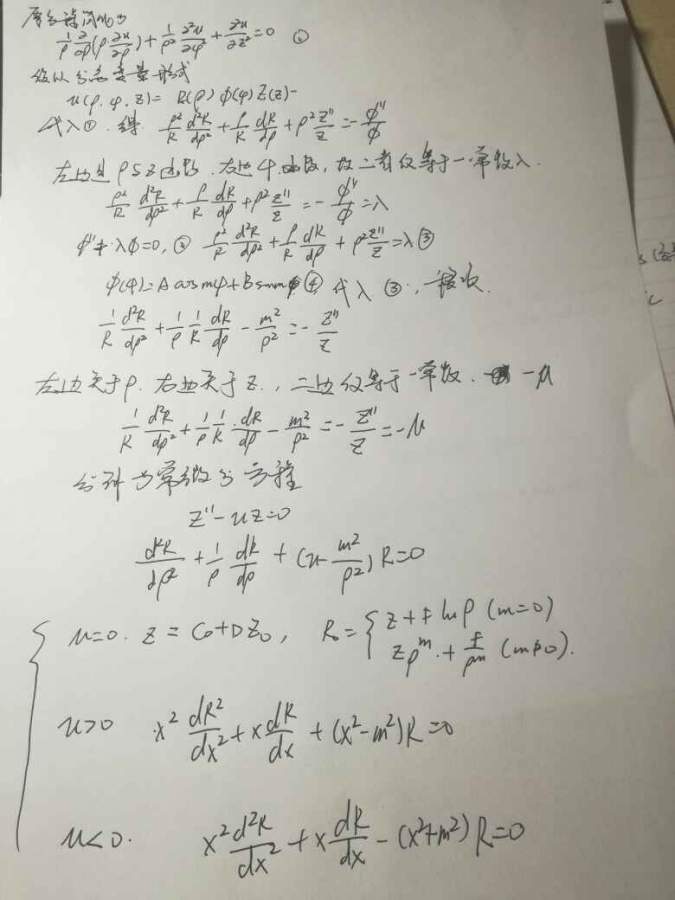 1/ρ ∂/∂ρ(ρ ∂u/∂ρ) + 1/ρ² ∂²u/∂φ² + ∂u/∂z² = 0 ①
变量形式
u(ρ, φ, z) = R(ρ) Φ(φ) Z(z)
代入①, 得 ρ²/R d²R/dρ² + ρ/R dR/dρ + ρ² Z''/Z = -Φ''/Φ
左边是ρ5Z函数, 右边φ函数, 故二者仅等于一常数λ.
ρ²/R d²R/dρ² + ρ/R dR/dρ + ρ² Z''/Z = -Φ''/Φ = λ
Φ''+λΦ=0, ② ρ²/R d²R/dρ² + ρ/R dR/dρ + ρ² Z''/Z = λ ③
Φ(φ) = A cosmφ + B sinmφ ④, 代入③,
1/R d²R/dρ² + 1/ρ 1/R dR/dρ - m²/ρ² = -Z''/Z
左边关于ρ, 右边关于Z, 二边仅等于一常数. -μ
1/R d²R/dρ² + 1/ρ 1/R dR/dρ - m²/ρ² = -Z''/Z = -μ
分列为常微分方程
Z''-uZ=0
d²R/dρ² + 1/ρ dR/dρ + (u-m²/ρ²)R=0
u=0. Z = C₀+DZ₀, R₀ = { Z+F lnρ (m=0)
Zρ^m + F/ρ^m (m≠0).
u>0 x² dR²/dx² + x dR/dx + (x²-m²)R=0
u<0. x² d²R/dx² + x dR/dx - (x²+m²)R=0